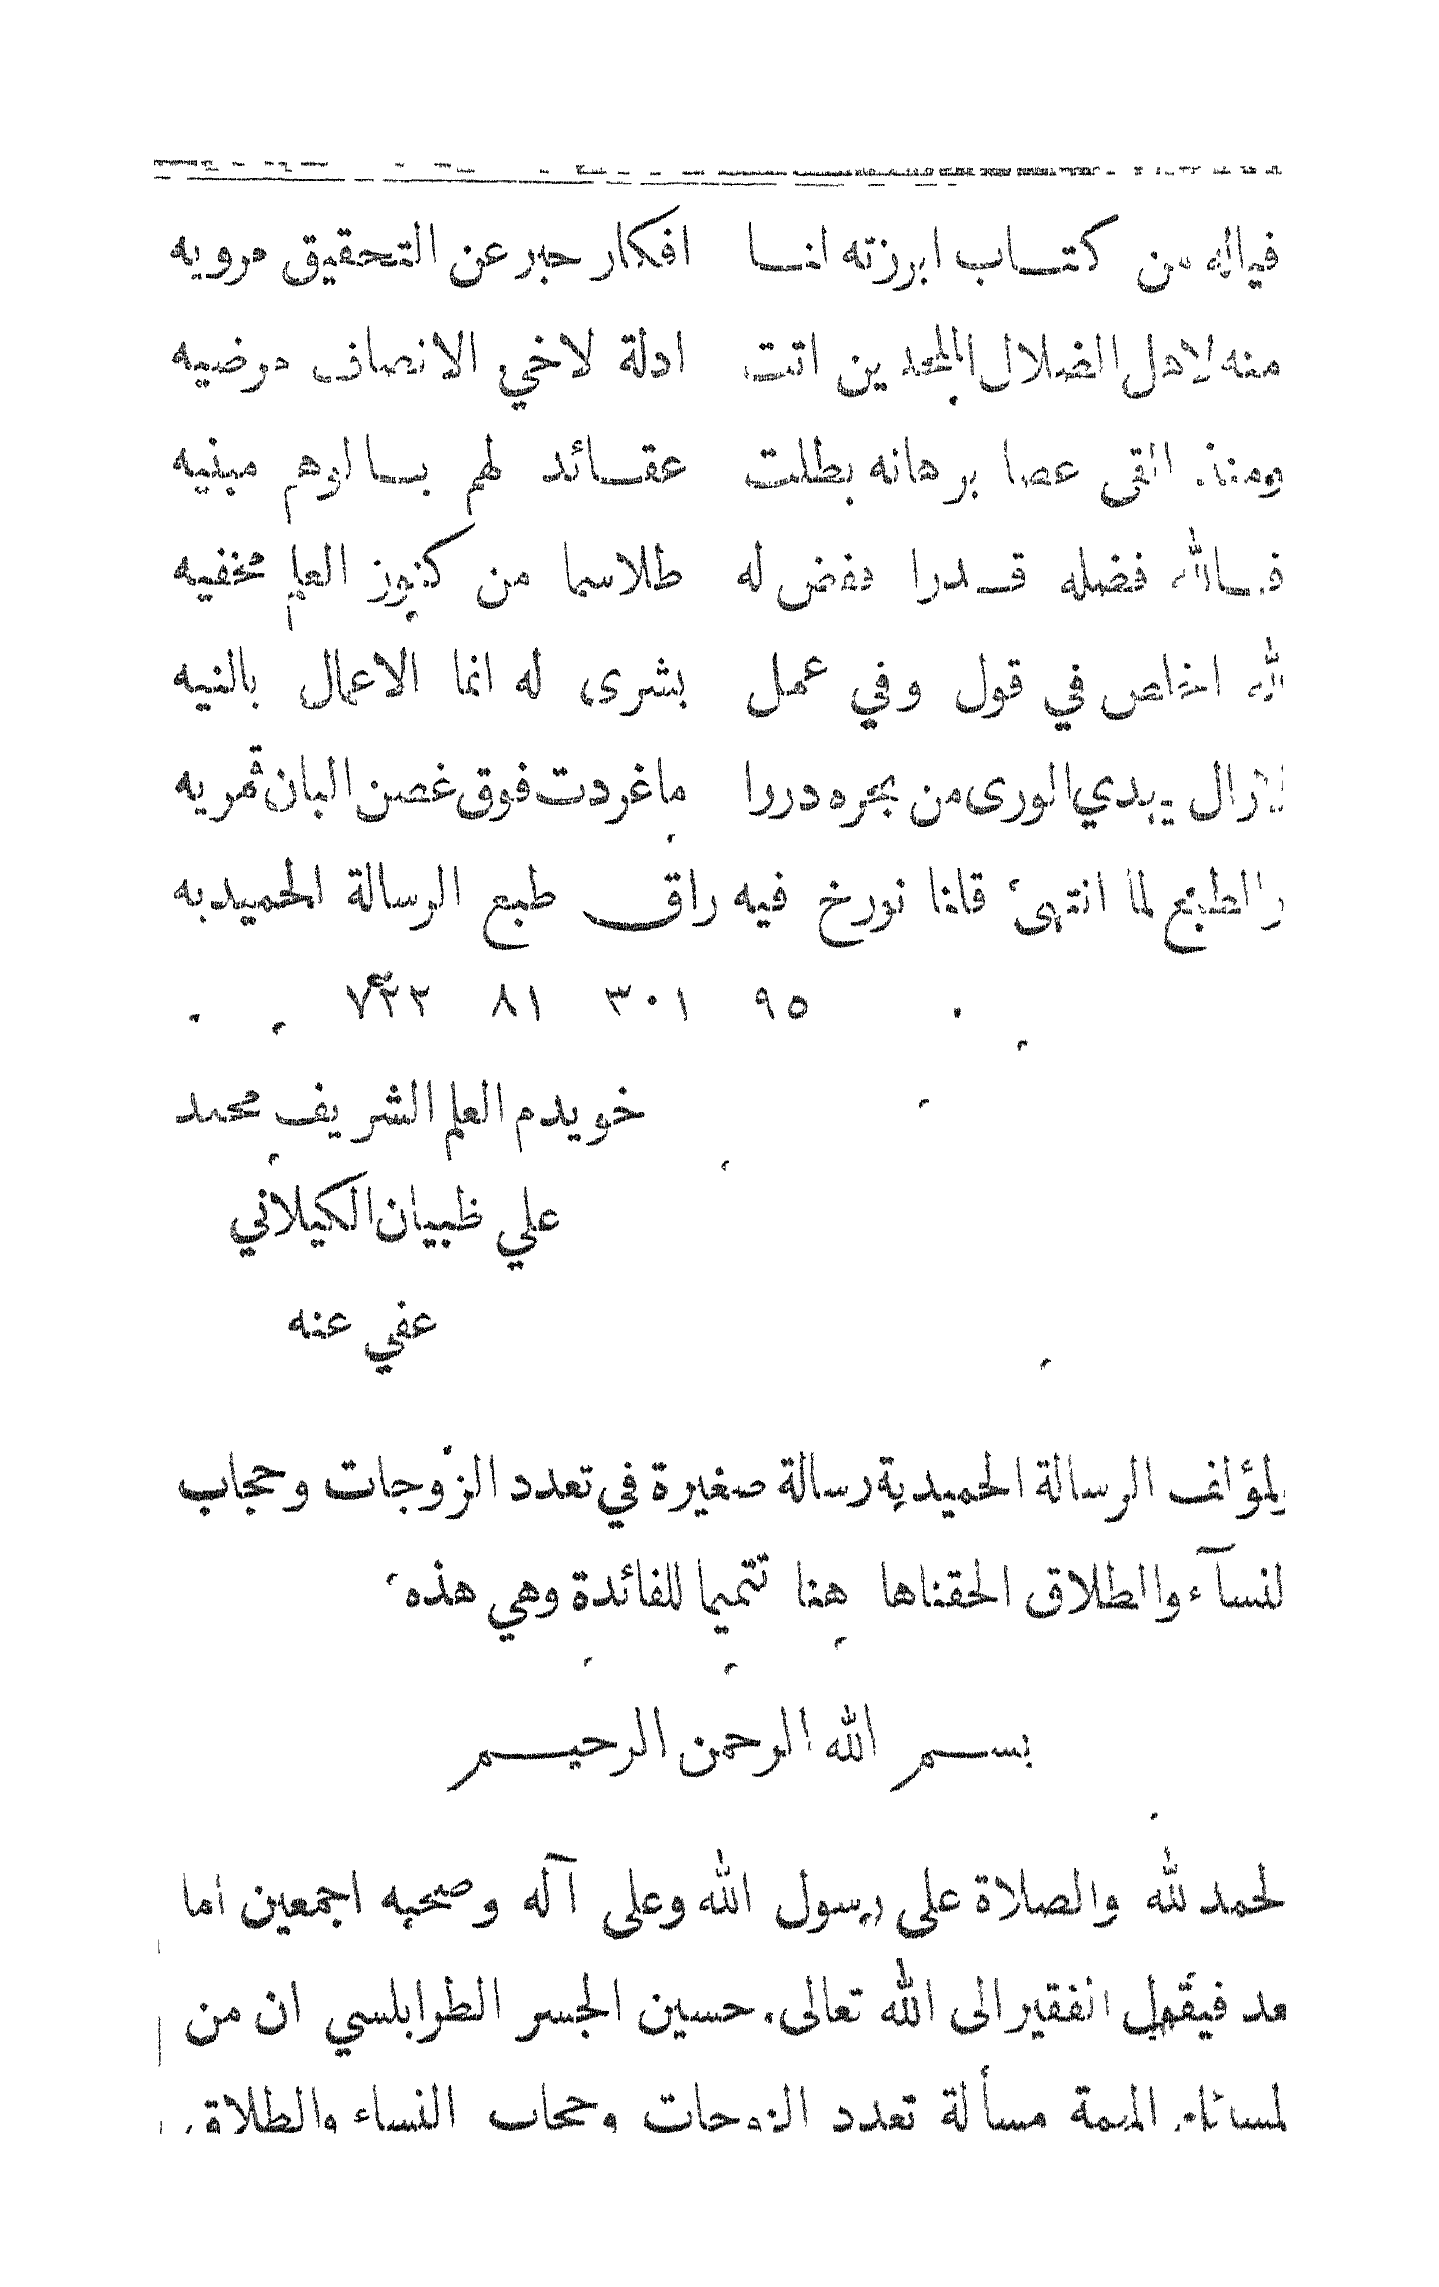 فياله من كتاب ابرزته لنا افكار حبر عن التحقيق مرويه
منه لاهل الضلال الملحدين اتت ادلة لاخي الانصاف مرضيه
ومنذ القى عصا برهانه بطلت عقائد لهم بالوهم مبنيه
فالله فضله قدرا ففض له طلاسما من كنوز العلم مخفيه
لله اخلص في قول وفي عمل بشرى له انما الاعمال بالنيه
لازال يبدي الورى من بحره دررا ما غردت فوق غصن البان قمريه
والطبع لما انتهى قلنا نورخ فيه راق طبع الرسالة الحميديه
٩٥ ٣٠١ ٨١ ٧٢٢
خويدم العلم الشريف محمد
علي ظبيان الكيلاني
عفي عنه
ولمؤلف الرسالة الحميدية رسالة صغيرة في تعدد الزوجات وحجاب
لنسآء والطلاق الحقناها هنا تتميما للفائدة وهي هذه
بسم الله الرحمن الرحيم
لحمد لله والصلاة على رسول الله وعلى آله وصحبه اجمعين اما
عد فيقول الفقير الى الله تعالى حسين الجسر الطرابلسي ان من
لمسائل المهمة مسألة تعدد الزوجات وحجاب النساء والطلاق